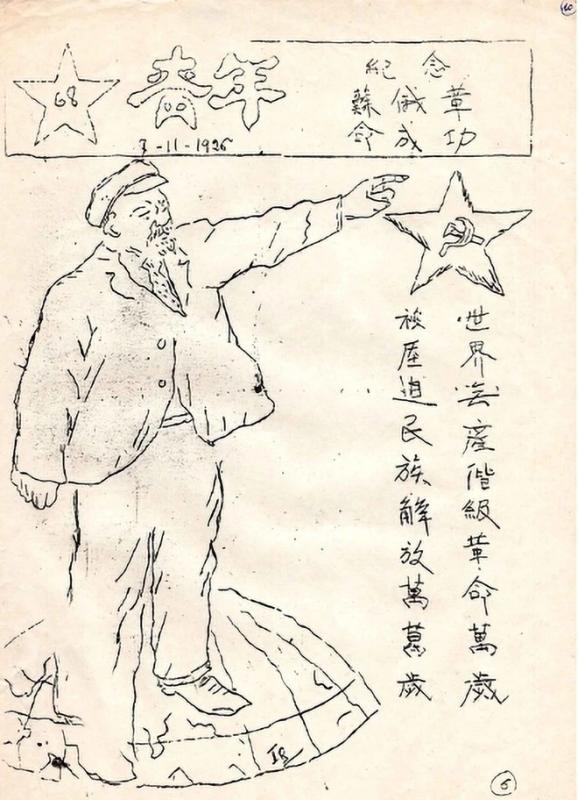 10
68
青年
7-11-1926
紀念
蘇俄革
命成功
世界無產偕級革命萬歲
被压迫民族解放萬萬歲
6